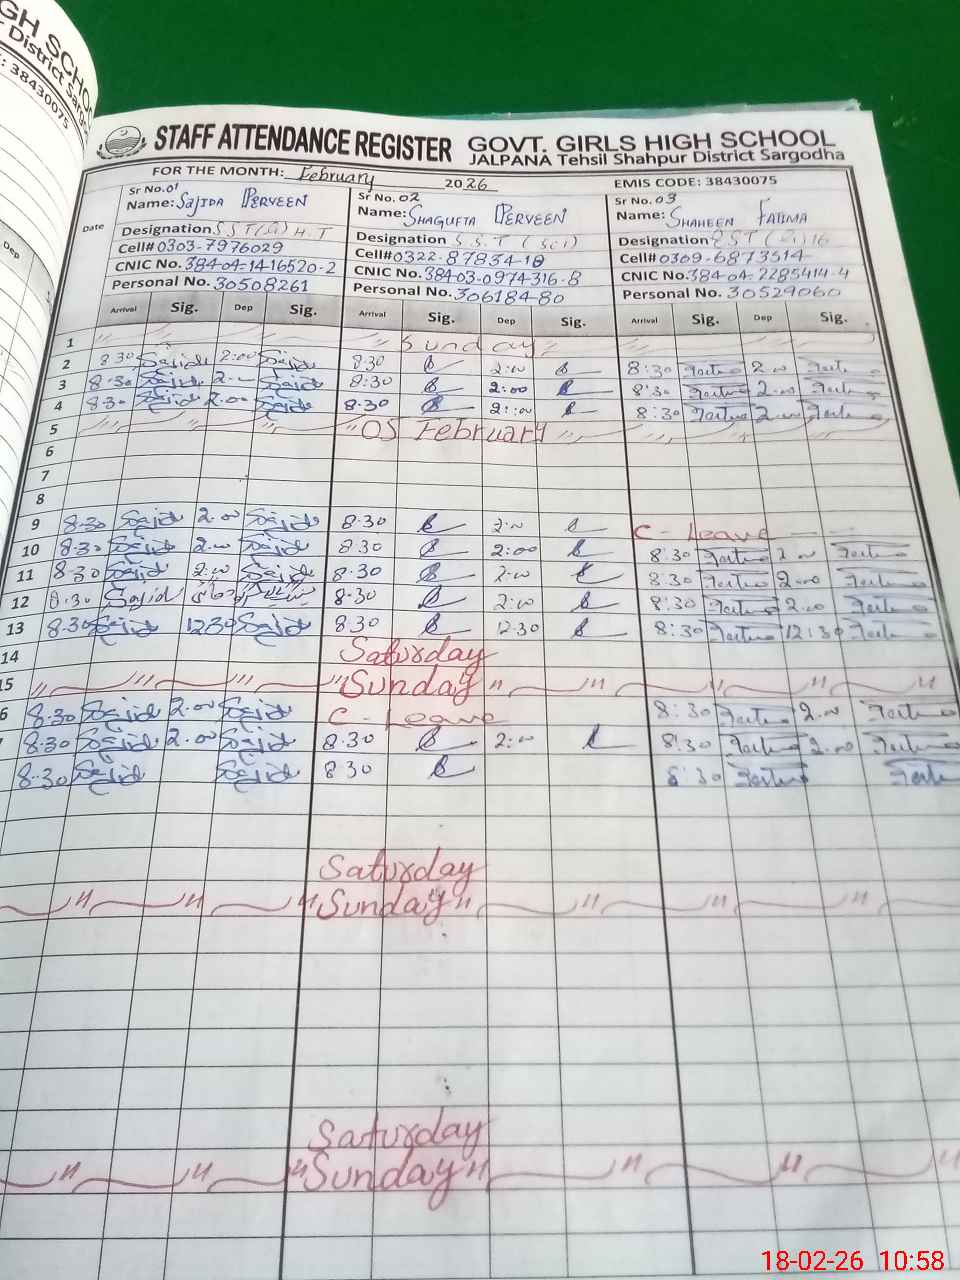 GH SCHO
r District Sarg
E: 38430075
Dep
STAFF ATTENDANCE REGISTER GOVT. GIRLS HIGH SCHOOL
JALPANA Tehsil Shahpur District Sargodha
FOR THE MONTH: February 2026 EMIS CODE: 38430075
Date
Sr No.01 Sr No. 02 Sr No. 03
Name: SAJIDA PERVEEN Name: SHAGUFTA PERVEEN Name: SHAHEEN FATIMA
Designation S S T (G) H.T Designation S.S.T (Sci) Designation EST (G) 16
Cell# 0303-7976029 Cell# 0322-87834-18 Cell# 0309-6873514
CNIC No. 38404-1416520-2 CNIC No. 38403-0974316-8 CNIC No. 38404-2285414-4
Personal No. 30508261 Personal No. 306184-80 Personal No. 30529060
Arrival Sig. Dep Sig. Arrival Sig. Dep Sig. Arrival Sig. Dep Sig.
1 Sunday
2 8.30 Sajida 2:00 Sajida 8:30 2:00 8:30 2.00
3 8.30 Sajida 2.00 Sajida 8:30 2:00 8:30 2.00
4 8.30 Sajida 2.00 Sajida 8.30 2:00 8:30 2.00
5 05 February
6
7
8
9 8.30 Sajida 2.00 Sajida 8.30 2:00 C - Leave
10 8.30 Sajida 2.00 Sajida 8.30 2:00 8:30 2.00
11 8.30 Sajida 2:00 Sajida 8.30 2:00 8:30 2.00
12 8.30 Sajid 8.30 2:00 8:30 2.00
13 8.30 Sajida 12.30 Sajida 8.30 12.30 8:30 12:30
14 Saturday
15 Sunday
6 8.30 Sajida 2.00 Sajida C - Leave 8:30 2.00
8.30 Sajida 2.00 Sajida 8.30 2:00 8:30 2.00
8.30 Sajida Sajida 8.30 8:30
Saturday
Sunday
Saturday
Sunday
18-02-26 10:58